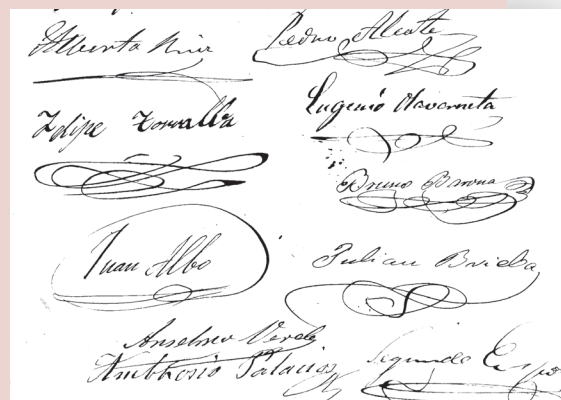 Alberta Ruiz
Pedro Alcate
Felipe Torralba
Eugenio Navarreta
Bruno Barona
Juan Albo
Julian Brieba
Anselmo Verde
Ambrosio Palacios
Segundo